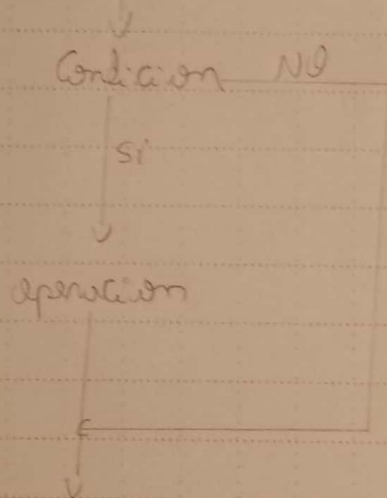 Condicion NO
Si
operacion